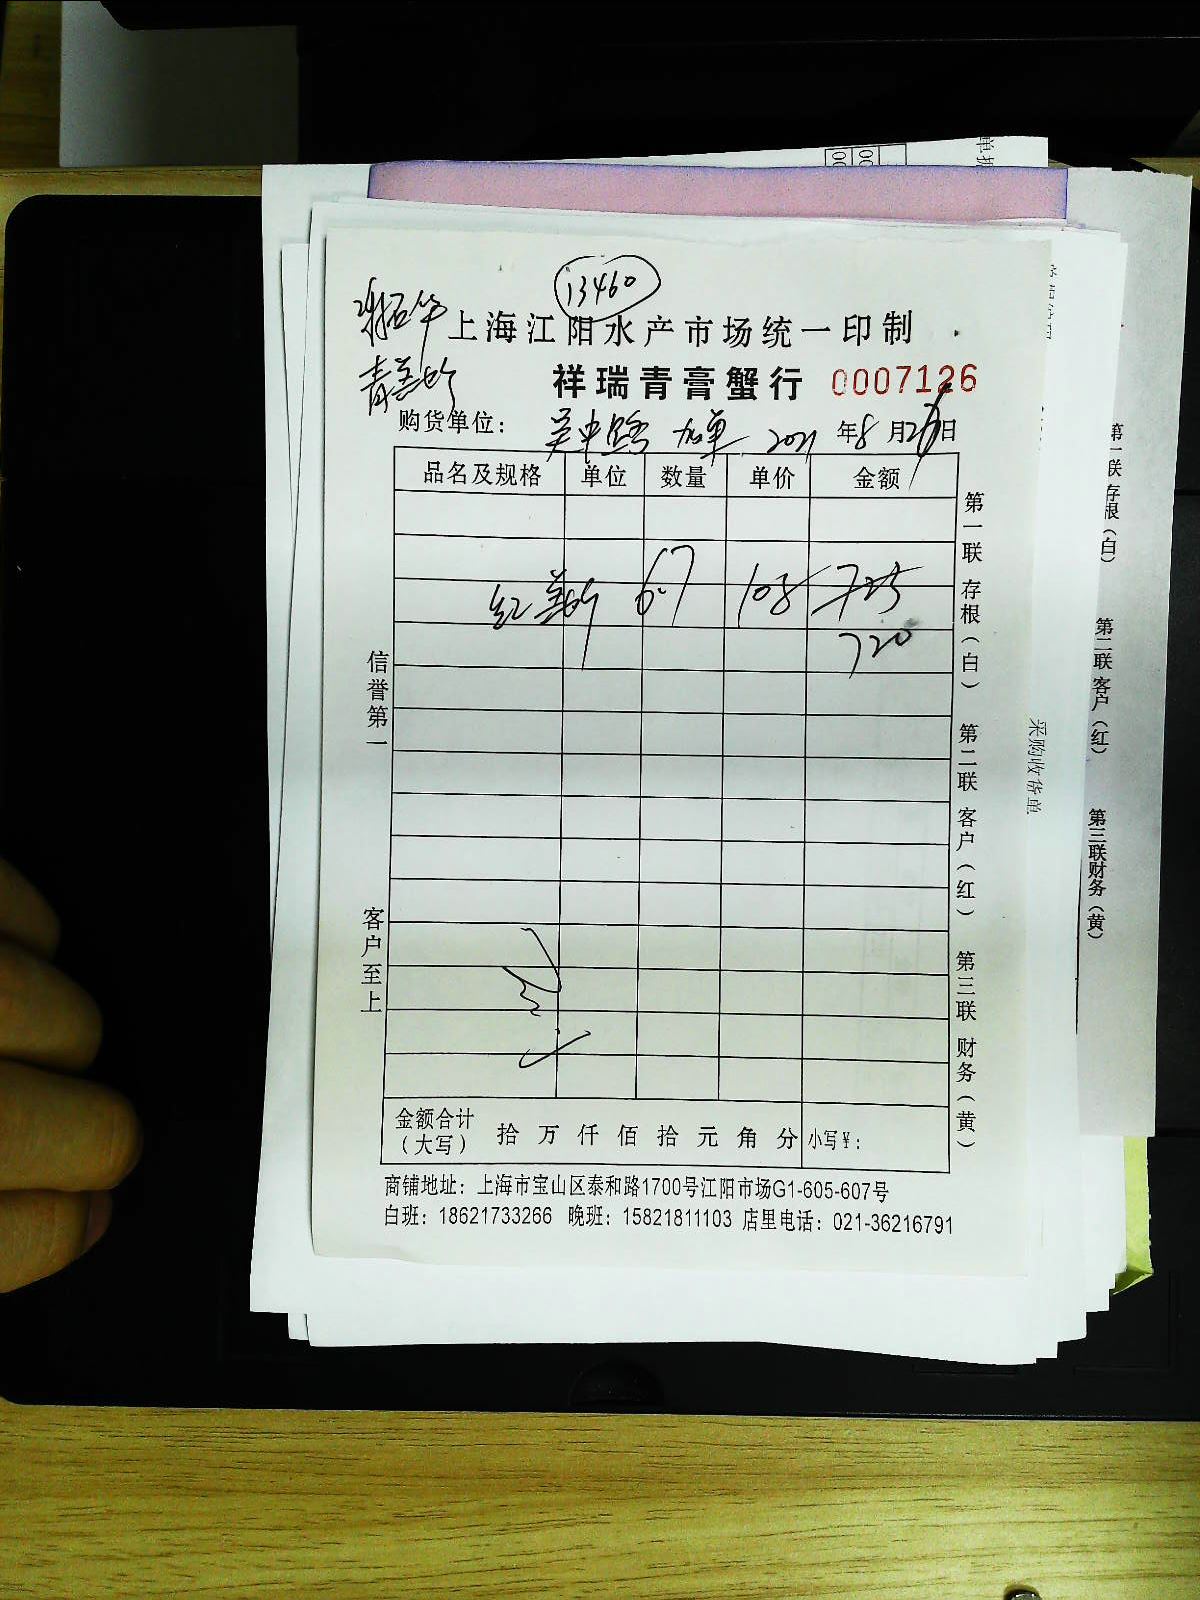 13460
上海江阳水产市场统一印制
祥瑞青膏蟹行 0007126
购货单位： 吴中路 加单 2021 年 8 月 26 日
品名及规格 单位 数量 单价 金额
6.7 108 725
720
信誉第一
客户至上
第一联 存根（白） 第二联 客户（红） 第三联 财务（黄）
金额合计（大写） 拾 万 仟 佰 拾 元 角 分 小写¥：
商铺地址：上海市宝山区泰和路1700号江阳市场G1-605-607号
白班：18621733266 晚班：15821811103 店里电话：021-36216791
采购收货单
第一联 存根（白）
第二联 客户（红）
第三联 财务（黄）